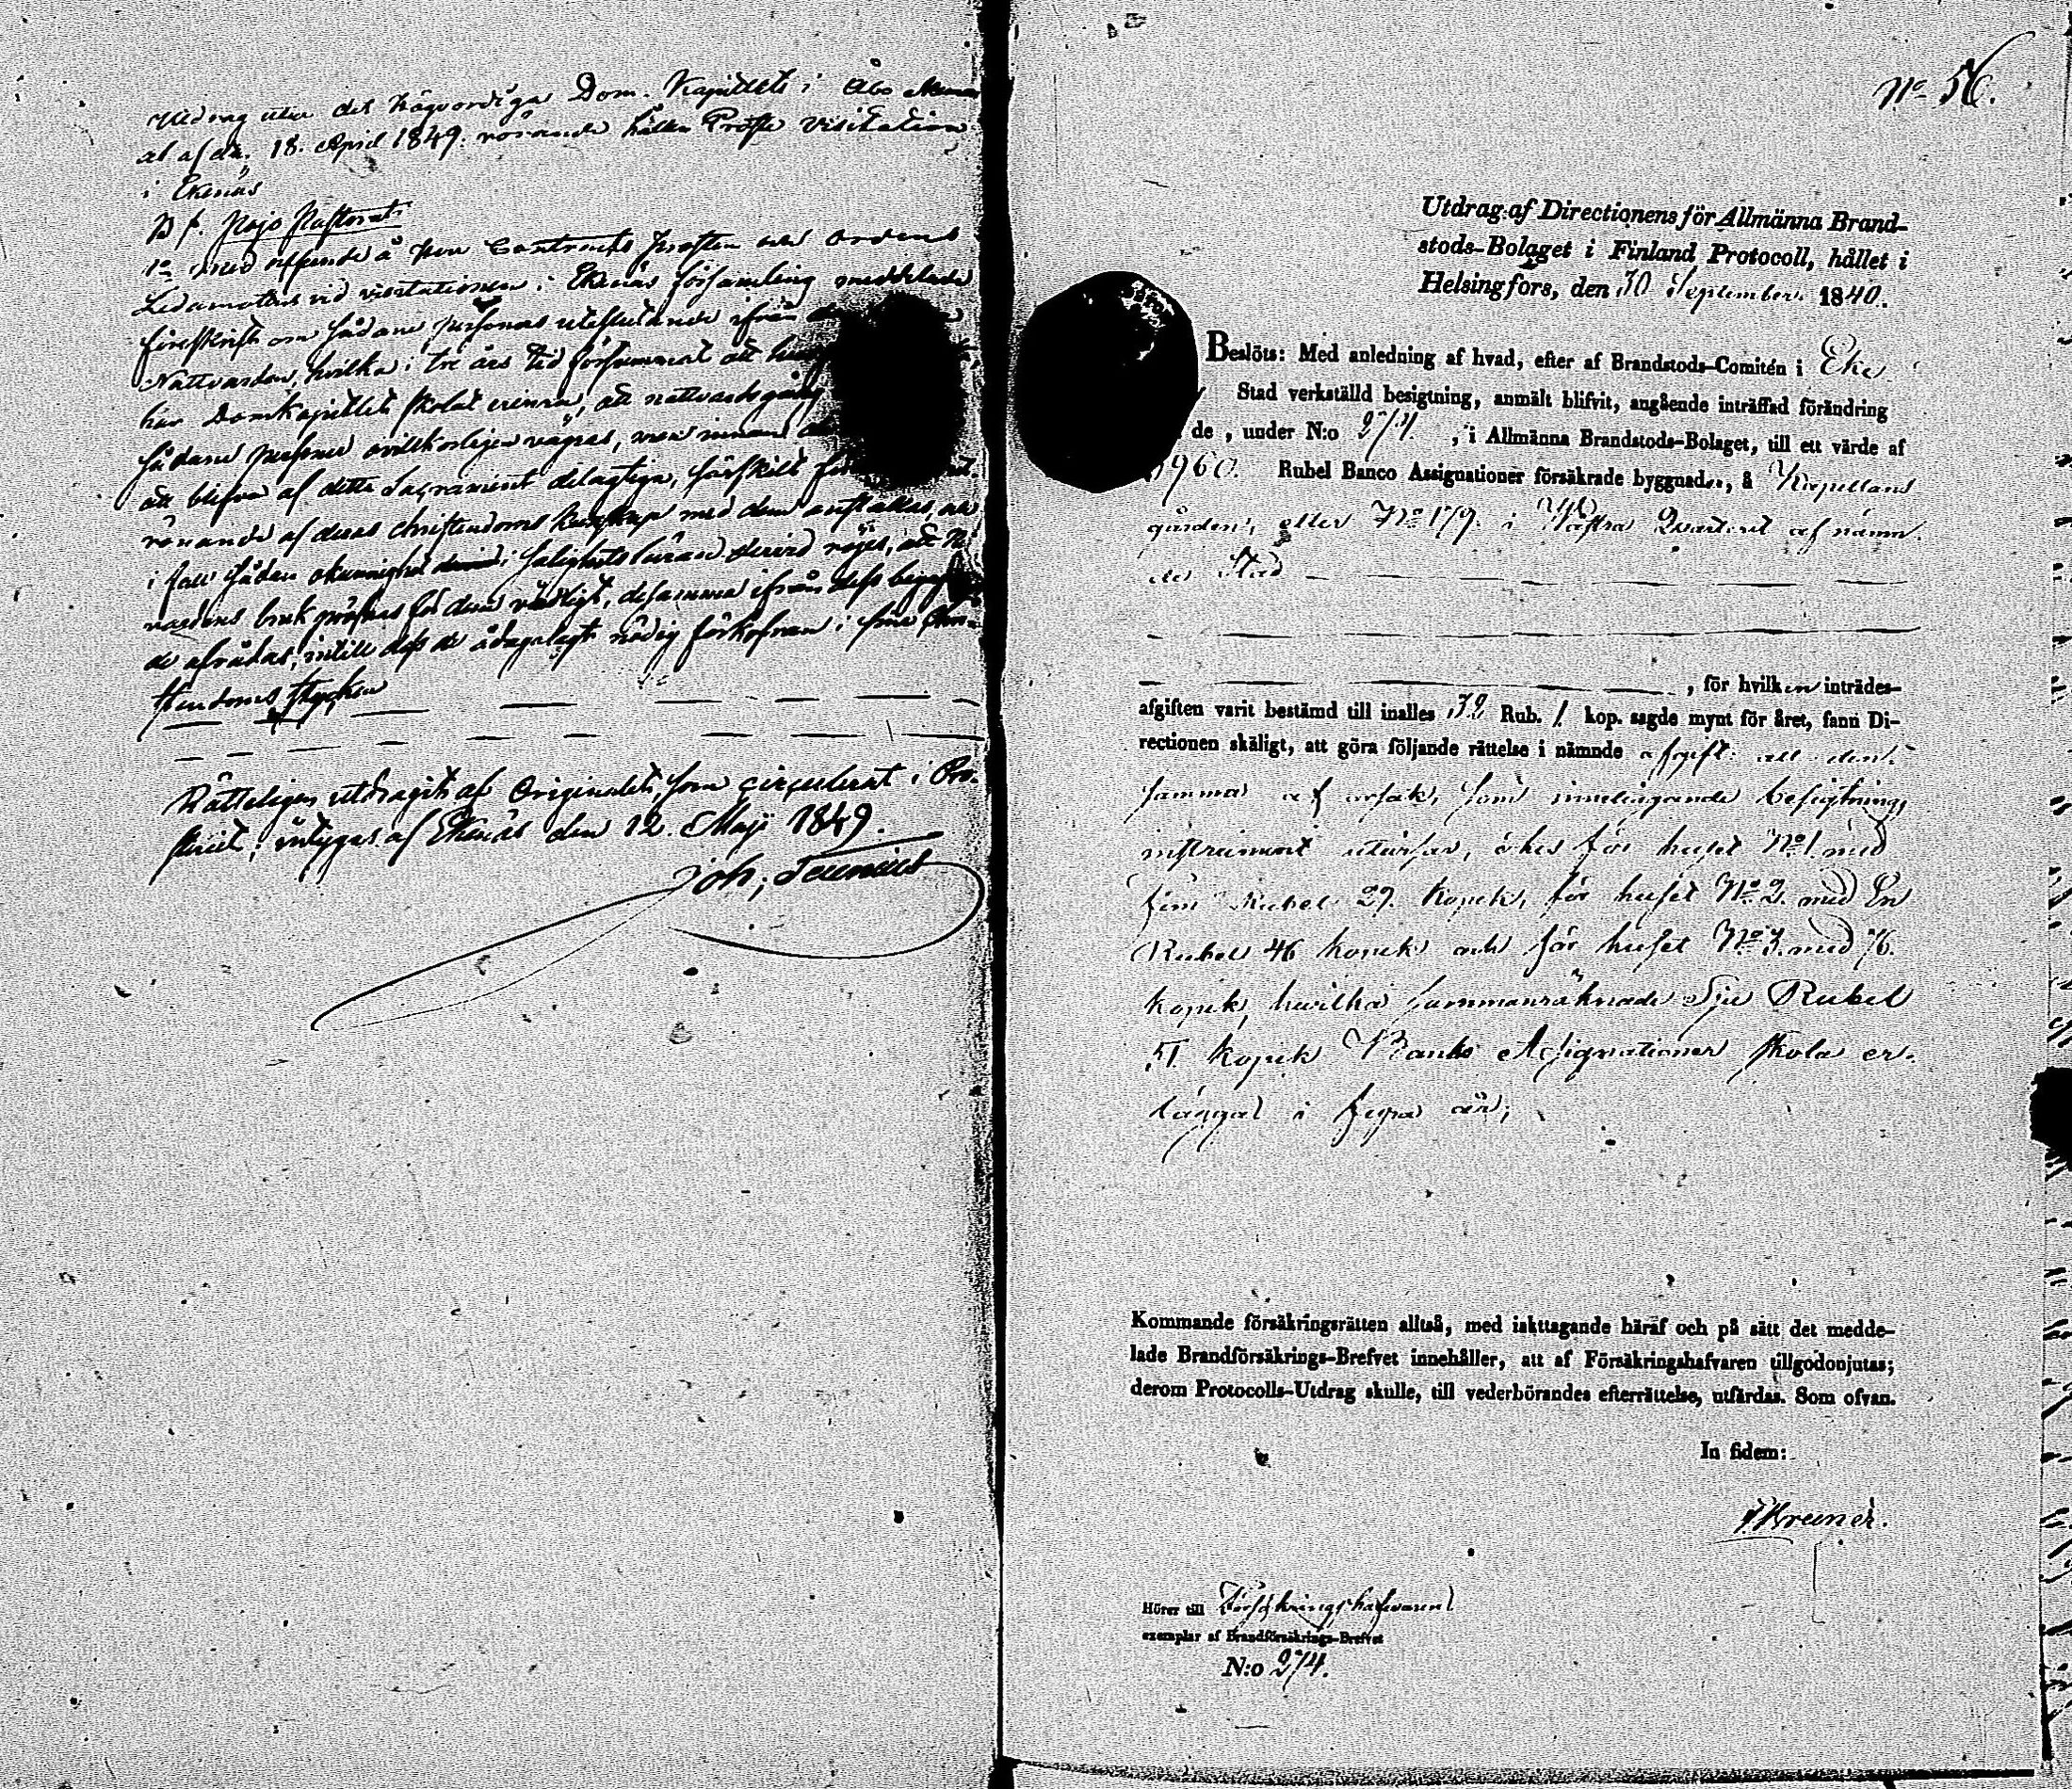 Utdrag utur det högvördiga Dom-Kapitlets i Åbo
af den 18. April 1849. rörande hållen Prosts Visitation
i Ekenäs
Pojo Pastorat
1o med afseende å Herr Contracts Prosten och Ordens
Ledamotens vid visitationen i Ekenäs församling meddelade
föreskrift om sådane personers uteslutande ifrån
Nattvarden, hvilka i tre års tid försummat att
har Domkapitlet skolat erinra, att nattvardsgång
sådane personer ovillkorligen vägras, men innan
att blifva af detta Sacrament delagtige, särskilt
rönande af deras christendoms kunskap med dem anställas, och
i fall sådan okunnighet i salighetsläran dervid röjes, att
vardens bruk pröfvas för dem vådligt, desamma ifrån dess
de afrådas, intill dess de ådagalagt nödig förkofran i sine Chri-
stendoms stycken
Rätteligen utdragit af Originalet, som circulerat i Pro-
steriet, intygas af Ekenäs den 12 Maji 1849.
Joh;
No 56.
Utdrag af Directionens för Allmänna Brand-
stods-Bolaget i Finland Protocoll, hållet i
Helsingfors, den 30 September 1840.
Beslöts: Med anledning af hvad, efter af Brandstods-Comitén i Eke
Stad verkställd besigtning, anmält blifvit, angående inträffad förändring
de, under N:o 274, i Allmänna Brandstods-Bolaget, till ett värde af
960. Rubel Banco Assignationer försäkrade byggnader, å Kapellans
gården, eller No 179. i Westra Qvarteret af nämn-
de Stad
, för hvilken inträdes-
afgiften varit bestämd till inalles 39 Rub. 1. kop. sagde mynt för året, fann Di-
rectionen skäligt, att göra följande rättelse i nämnde afgift: att den-
samma af orsak, som inneliggande besigtnings
instrument utvisar, ökes för huset No 1. med
fem Rubel 29. Kopek, för huset No 2. med En
Rubel 46 Kopek och för huset No 3. med 76.
kopek, hwilka sammanräknade Sju Rubel
51 Kopek Banko Assignationer skola er-
läggas i fyra år;
Kommande försäkringsrätten alltså, med iakttagande häraf och på sätt det medde-
lade Brandförsäkrings-Brefvet innehåller, att af Försäkringshafvaren tillgodonjutas;
derom Protocolls-Utdrag skulle, till vederbörandes efterrättelse, utfärdas. Som ofvan.
In fidem:
Hörer till Försäkringshafvarens
exemplar af Brandförsäkrings-Brefvet
N:o 274.